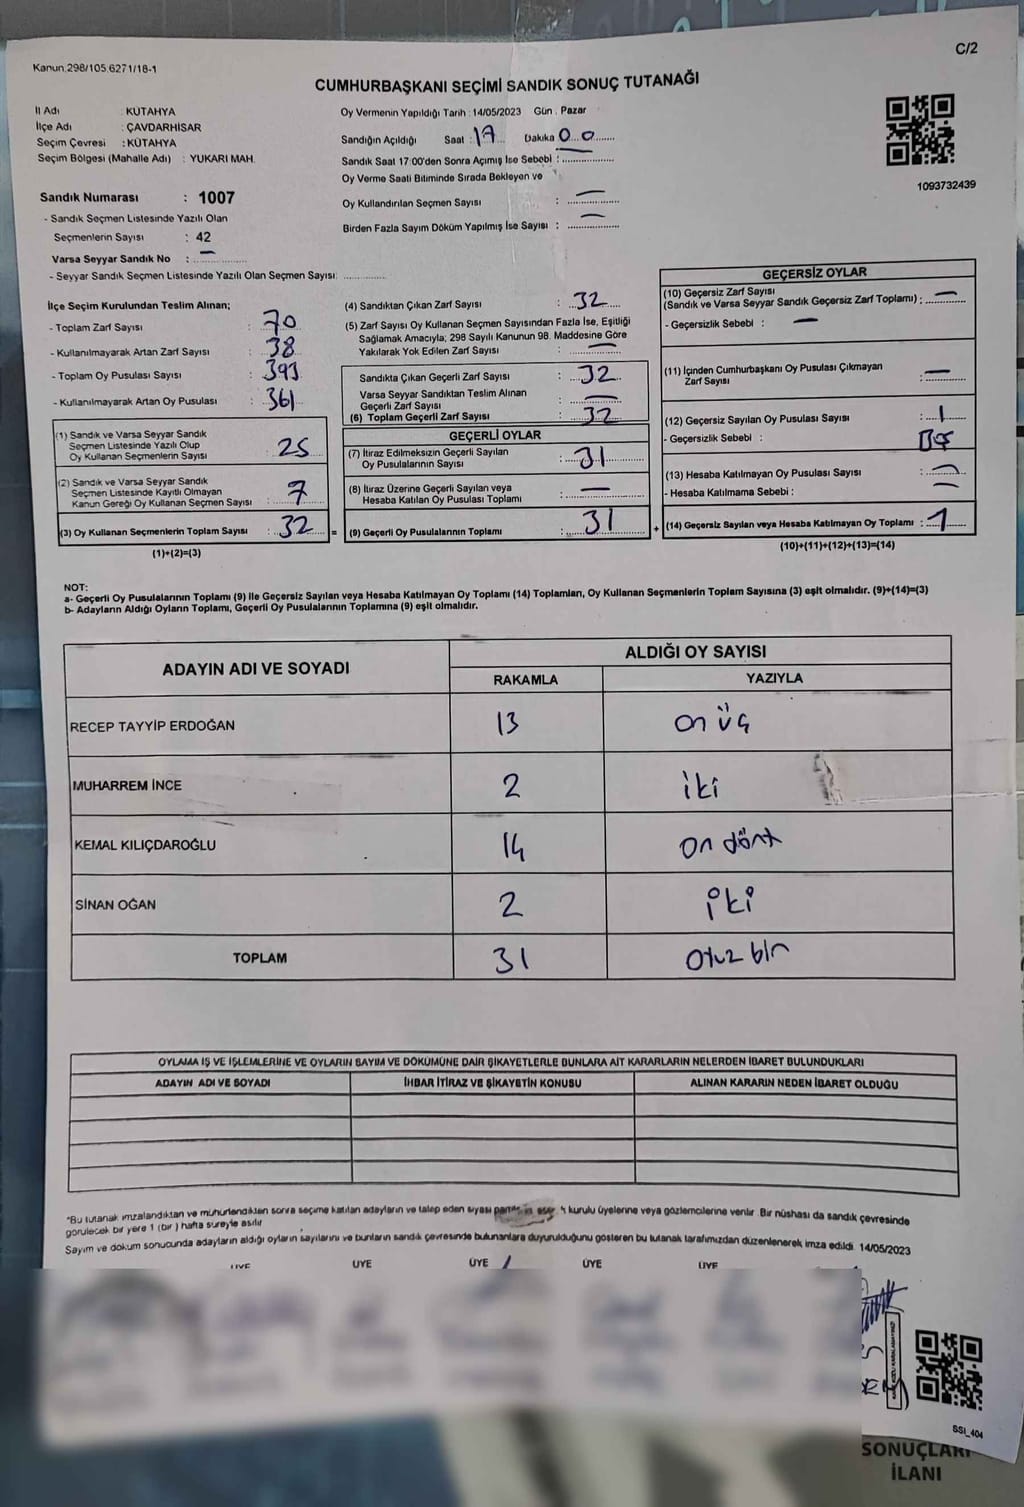 C/2
Kanun.298/105.6271/18-1
CUMHURBAŞKANI SEÇİMİ SANDIK SONUÇ TUTANAĞI
İl Adı : KÜTAHYA
İlçe Adı : ÇAVDARHİSAR
Seçim Çevresi : KÜTAHYA
Seçim Bölgesi (Mahalle Adı) : YUKARI MAH.
Sandık Numarası : 1007
- Sandık Seçmen Listesinde Yazılı Olan
Seçmenlerin Sayısı : 42
Varsa Seyyar Sandık No : —
- Seyyar Sandık Seçmen Listesinde Yazılı Olan Seçmen Sayısı:
Oy Vermenin Yapıldığı Tarih : 14/05/2023 Gün : Pazar
Sandığın Açıldığı Saat : 17 Dakika 00
Sandık Saat 17:00'den Sonra Açımış İse Sebebi :
Oy Verme Saati Bitiminde Sırada Bekleyen ve
Oy Kullandırılan Seçmen Sayısı : —
Birden Fazla Sayım Döküm Yapılmış İse Sayısı : —
1093732439
İlçe Seçim Kurulundan Teslim Alınan;
- Toplam Zarf Sayısı : 70
- Kullanılmayarak Artan Zarf Sayısı : 38
- Toplam Oy Pusulası Sayısı : 393
- Kullanılmayarak Artan Oy Pusulası : 361
(1) Sandık ve Varsa Seyyar Sandık
Seçmen Listesinde Yazılı Olup
Oy Kullanan Seçmenlerin Sayısı : 25
(2) Sandık ve Varsa Seyyar Sandık
Seçmen Listesinde Kayıtlı Olmayan
Kanun Gereği Oy Kullanan Seçmen Sayısı : 7
(3) Oy Kullanan Seçmenlerin Toplam Sayısı : 32 =
(1)+(2)=(3)
(4) Sandıktan Çıkan Zarf Sayısı : 32
(5) Zarf Sayısı Oy Kullanan Seçmen Sayısından Fazla İse, Eşitliği
Sağlamak Amacıyla; 298 Sayılı Kanunun 98. Maddesine Göre
Yakılarak Yok Edilen Zarf Sayısı : —
Sandıkta Çıkan Geçerli Zarf Sayısı : 32
Varsa Seyyar Sandıktan Teslim Alınan
Geçerli Zarf Sayısı : —
(6) Toplam Geçerli Zarf Sayısı : 32
GEÇERLİ OYLAR
(7) İtiraz Edilmeksizin Geçerli Sayılan
Oy Pusulalarının Sayısı : 31
(8) İtiraz Üzerine Geçerli Sayılan veya
Hesaba Katılan Oy Pusulası Toplamı : —
(9) Geçerli Oy Pusulalarının Toplamı : 31 +
GEÇERSİZ OYLAR
(10) Geçersiz Zarf Sayısı
(Sandık ve Varsa Seyyar Sandık Geçersiz Zarf Toplamı) : —
- Geçersizlik Sebebi : —
(11) İçinden Cumhurbaşkanı Oy Pusulası Çıkmayan
Zarf Sayısı : —
(12) Geçersiz Sayılan Oy Pusulası Sayısı : 1
- Geçersizlik Sebebi : Boş
(13) Hesaba Katılmayan Oy Pusulası Sayısı : —
- Hesaba Katılmama Sebebi : —
(14) Geçersiz Sayılan veya Hesaba Katılmayan Oy Toplamı : 1
(10)+(11)+(12)+(13)=(14)
NOT:
a- Geçerli Oy Pusulalarının Toplamı (9) ile Geçersiz Sayılan veya Hesaba Katılmayan Oy Toplamı (14) Toplamları, Oy Kullanan Seçmenlerin Toplam Sayısına (3) eşit olmalıdır. (9)+(14)=(3)
b- Adayların Aldığı Oyların Toplamı, Geçerli Oy Pusulalarının Toplamına (9) eşit olmalıdır.
ADAYIN ADI VE SOYADI
ALDIĞI OY SAYISI
RAKAMLA YAZIYLA
RECEP TAYYİP ERDOĞAN 13 on üç
MUHARREM İNCE 2 iki
KEMAL KILIÇDAROĞLU 14 on dört
SİNAN OĞAN 2 iki
TOPLAM 31 otuz bir
OYLAMA İŞ VE İŞLEMLERİNE VE OYLARIN SAYIM VE DÖKÜMÜNE DAİR ŞİKAYETLERLE BUNLARA AİT KARARLARIN NELERDEN İBARET BULUNDUKLARI
ADAYIN ADI VE SOYADI İHBAR İTİRAZ VE ŞİKAYETİN KONUSU ALINAN KARARIN NEDEN İBARET OLDUĞU
*Bu tutanak imzalandıktan ve mühürlendikten sonra seçime katılan adayların ve talep eden siyasi kurulu üyelerine veya gözlemcilerine verilir. Bir nüshası da sandık çevresinde
görülecek bir yere 1 (bir) hafta süreyle asılır
Sayım ve döküm sonucunda adayların aldığı oyların sayılarını ve bunların sandık çevresinde bulunanlara duyurulduğunu gösteren bu tutanak tarafımızdan düzenlenerek imza edildi. 14/05/2023
ÜYE ÜYE ÜYE ÜYE ÜYE
SSI_404
SONUÇLARI
İLANI